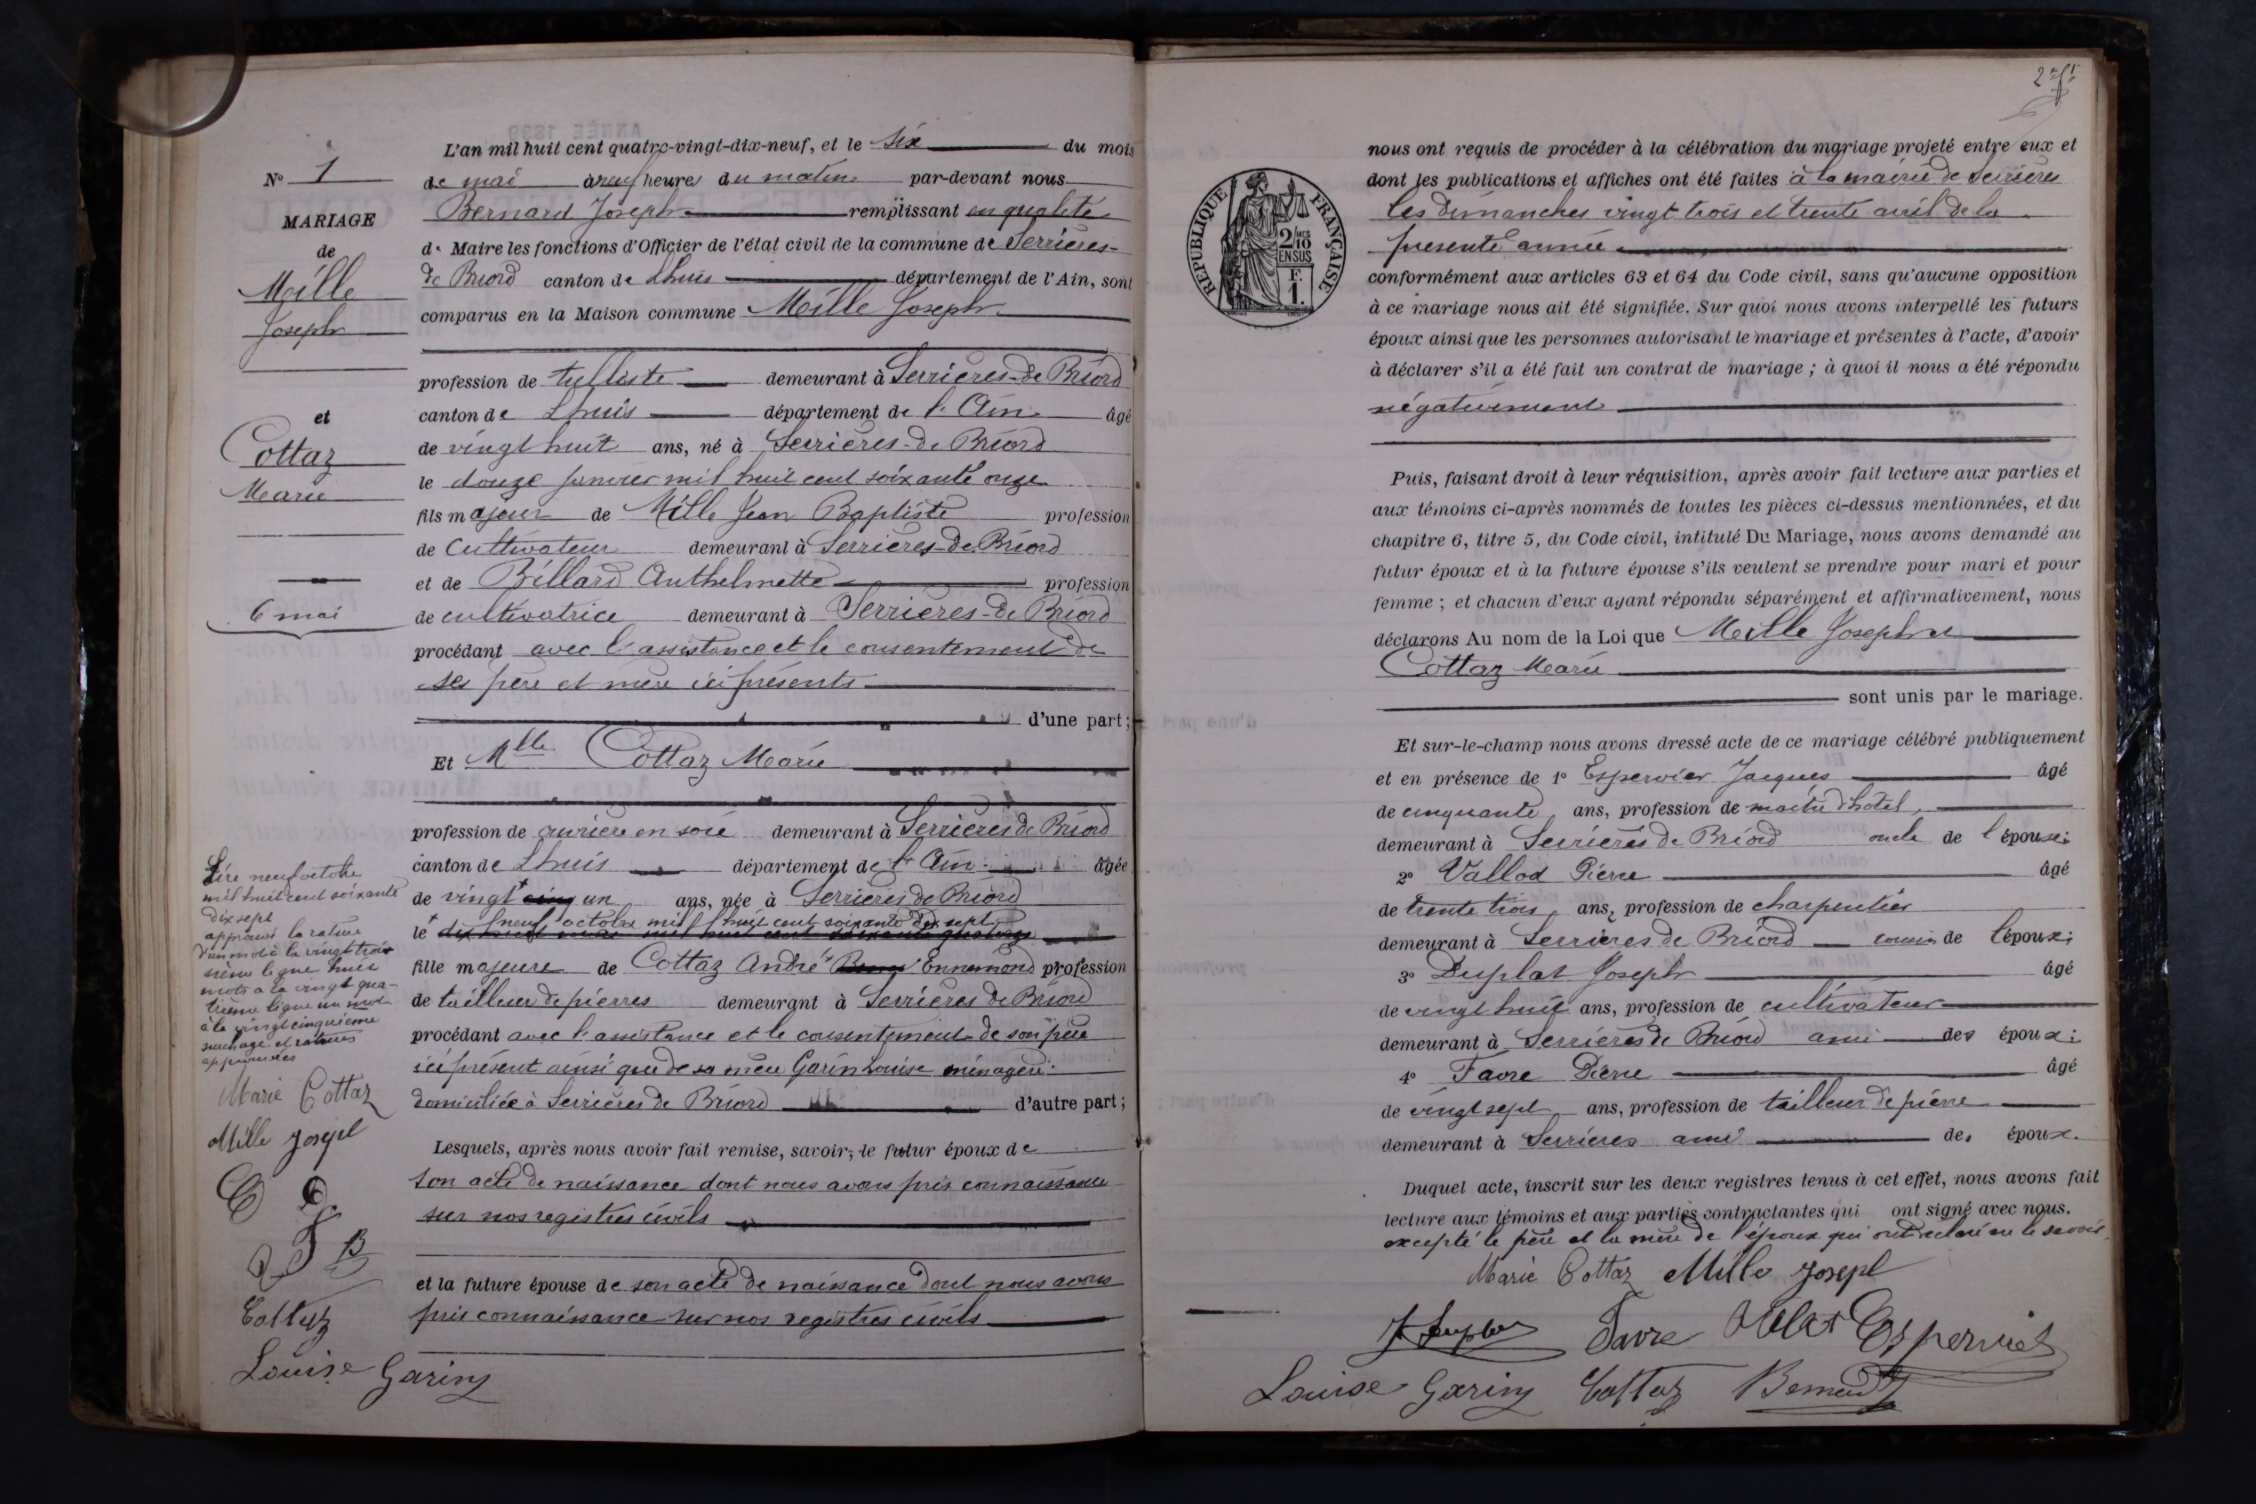 N° 1
MARIAGE
de
Mille
Joseph
et
Cottaz
Marie
6 mai
Lire neuf octobre
mil huit cent soixante
dix sept
approuvé la rature
d'un mot à la vingt trois
ième ligne huit
mots à la vingt qua-
trième ligne un mot
à la vingt cinquième
surcharge et ratures
approuvées
Marie Cottaz
Mille Josepl
Cottaz
Louise Garin
L'an mil huit cent quatre-vingt-dix-neuf, et le six du mois
de mai à neuf heures du matin par-devant nous
Bernard Joseph remplissant en qualité
de Maire les fonctions d'Officier de l'état civil de la commune de Serrières-
de Briord canton de Lhuis département de l'Ain, sont
comparus en la Maison commune Mille Joseph
profession de tulliste demeurant à Serrières-de Briord
canton de Lhuis département de l'Ain âgé
de vingt huit ans, né à Serrières-de Briord
le douze janvier mil huit cent soixante onze
fils majeur de Mille Jean Baptiste profession
de cultivateur demeurant à Serrières-de Briord
et de Billard Anthelmette profession
de cultivatrice demeurant à Serrières-de Briord
procédant avec l'assistance et le consentement de
ses père et mère ici présents
d'une part;
Et Mlle Cottaz Marie
profession de ouvrière en soie demeurant à Serrières de Briord
canton de Lhuis département de l'Ain âgée
de vingt cinq un ans, née à Serrières de Briord
neuf octobre mil huit cent soixante dix sept
le dix huit mai mil huit cent soixante quatorze
fille majeure de Cottaz André Ennemond profession
de tailleur de pierres demeurant à Serrières de Briord
procédant avec l'assistance et le consentement de son père
ici présent ainsi que de sa mère Garin Louise ménagère
domiciliée à Serrières de Briord d'autre part;
Lesquels, après nous avoir fait remise, savoir; le futur époux de
son acte de naissance dont nous avons pris connaissance
sur nos registres civils
et la future épouse de son acte de naissance dont nous avons
pris connaissance sur nos registres civils
RÉPUBLIQUE FRANÇAISE
2/10
EN SUS
F.
1.
nous ont requis de procéder à la célébration du mariage projeté entre eux et
dont les publications et affiches ont été faites à la mairie de Serrières
les dimanches vingt trois et trente avril de la
présente année
conformément aux articles 63 et 64 du Code civil, sans qu'aucune opposition
à ce mariage nous ait été signifiée. Sur quoi nous avons interpellé les futurs
époux ainsi que les personnes autorisant le mariage et présentes à l'acte, d'avoir
à déclarer s'il a été fait un contrat de mariage; à quoi il nous a été répondu
négativement
Puis, faisant droit à leur réquisition, après avoir fait lecture aux parties et
aux témoins ci-après nommés de toutes les pièces ci-dessus mentionnées, et du
chapitre 6, titre 5, du Code civil, intitulé Du Mariage, nous avons demandé au
futur époux et à la future épouse s'ils veulent se prendre pour mari et pour
femme; et chacun d'eux ayant répondu séparément et affirmativement, nous
déclarons Au nom de la Loi que Mille Joseph et
Cottaz Marie
sont unis par le mariage.
Et sur-le-champ nous avons dressé acte de ce mariage célébré publiquement
et en présence de 1° Espervier Jacques âgé
de cinquante ans, profession de maître d'hôtel,
demeurant à Serrières de Briord oncle de l'épouse;
2° Vallod Pierre âgé
de trente trois ans, profession de charpentier
demeurant à Serrières de Briord cousin de l'époux;
3° Duplat Joseph âgé
de vingt huit ans, profession de cultivateur
demeurant à Serrières de Briord ami des époux;
4° Favre Pierre âgé
de vingt sept ans, profession de tailleur de pierre
demeurant à Serrières ami des époux.
Duquel acte, inscrit sur les deux registres tenus à cet effet, nous avons fait
lecture aux témoins et aux parties contractantes qui ont signé avec nous.
excepté le père et la mère de l'époux qui ont déclaré ne le savoir.
Marie Cottaz Mille Josepl
J Duplat Favre Espervier
Louise Garin Cottaz Bernard